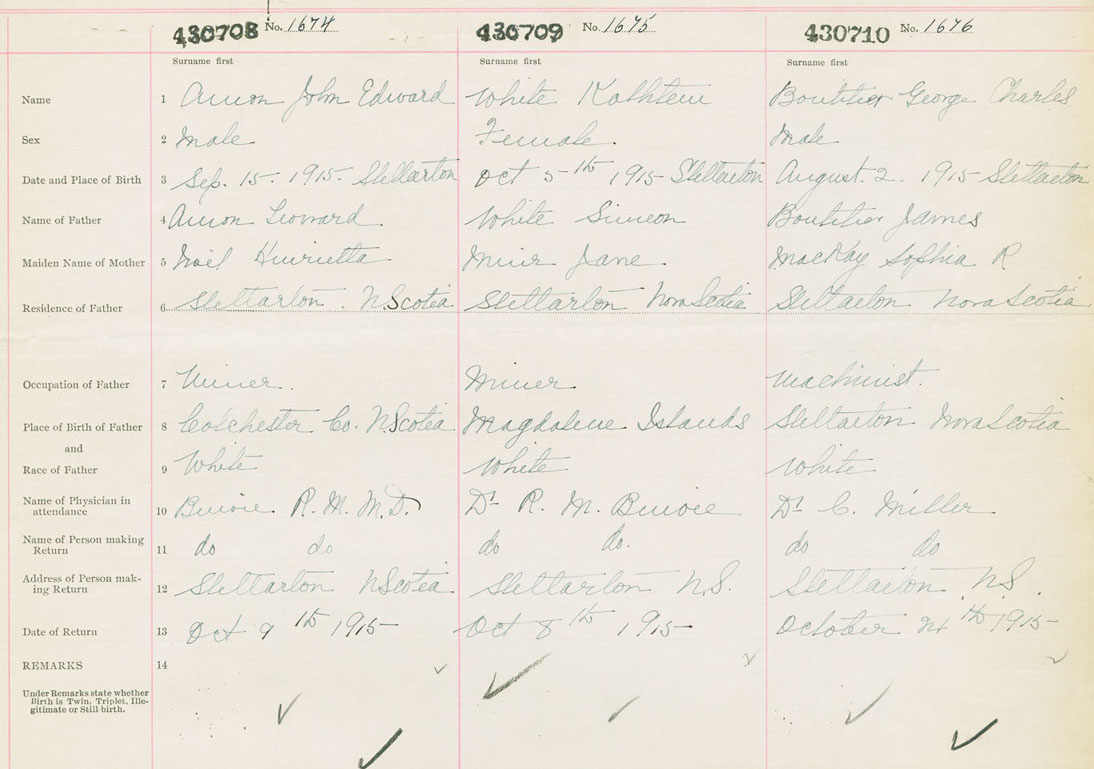 430708 No. 1674 430709 No. 1675 430710 No. 1676
Surname first Surname first Surname first
Name 1 John Edward White Kathleen Boutilier George Charles
Sex 2 Male Female. Male
Date and Place of Birth 3 Sep. 15. 1915. Stellarton Oct 5th 1915 Stellarton August. 2. 1915 Stellarton
Name of Father 4 Leonard. White Simeon Boutilier James
Maiden Name of Mother 5 Noil Henrietta Muir Jane. MacKay Sophia R
Residence of Father 6 Stellarton. N.Scotia Stellarton Nova Scotia Stellarton Nova Scotia
Occupation of Father 7 Miner. Miner. Machinist.
Place of Birth of Father 8 Colchester Co. N.Scotia Magdalene Islands Stellarton Nova Scotia
and
Race of Father 9 White White White
Name of Physician in
attendance 10 R. M. M.D. Dr R. M. Dr C. Miller
Name of Person making
Return 11 do do do do. do do
Address of Person mak-
ing Return 12 Stellarton N Scotia Stellarton N.S. Stellarton N.S.
Date of Return 13 Oct 9th 1915 Oct 8th 1915 October 1915
REMARKS 14
Under Remarks state whether
Birth is Twin, Triplet, Ille-
gitimate or Still-birth.